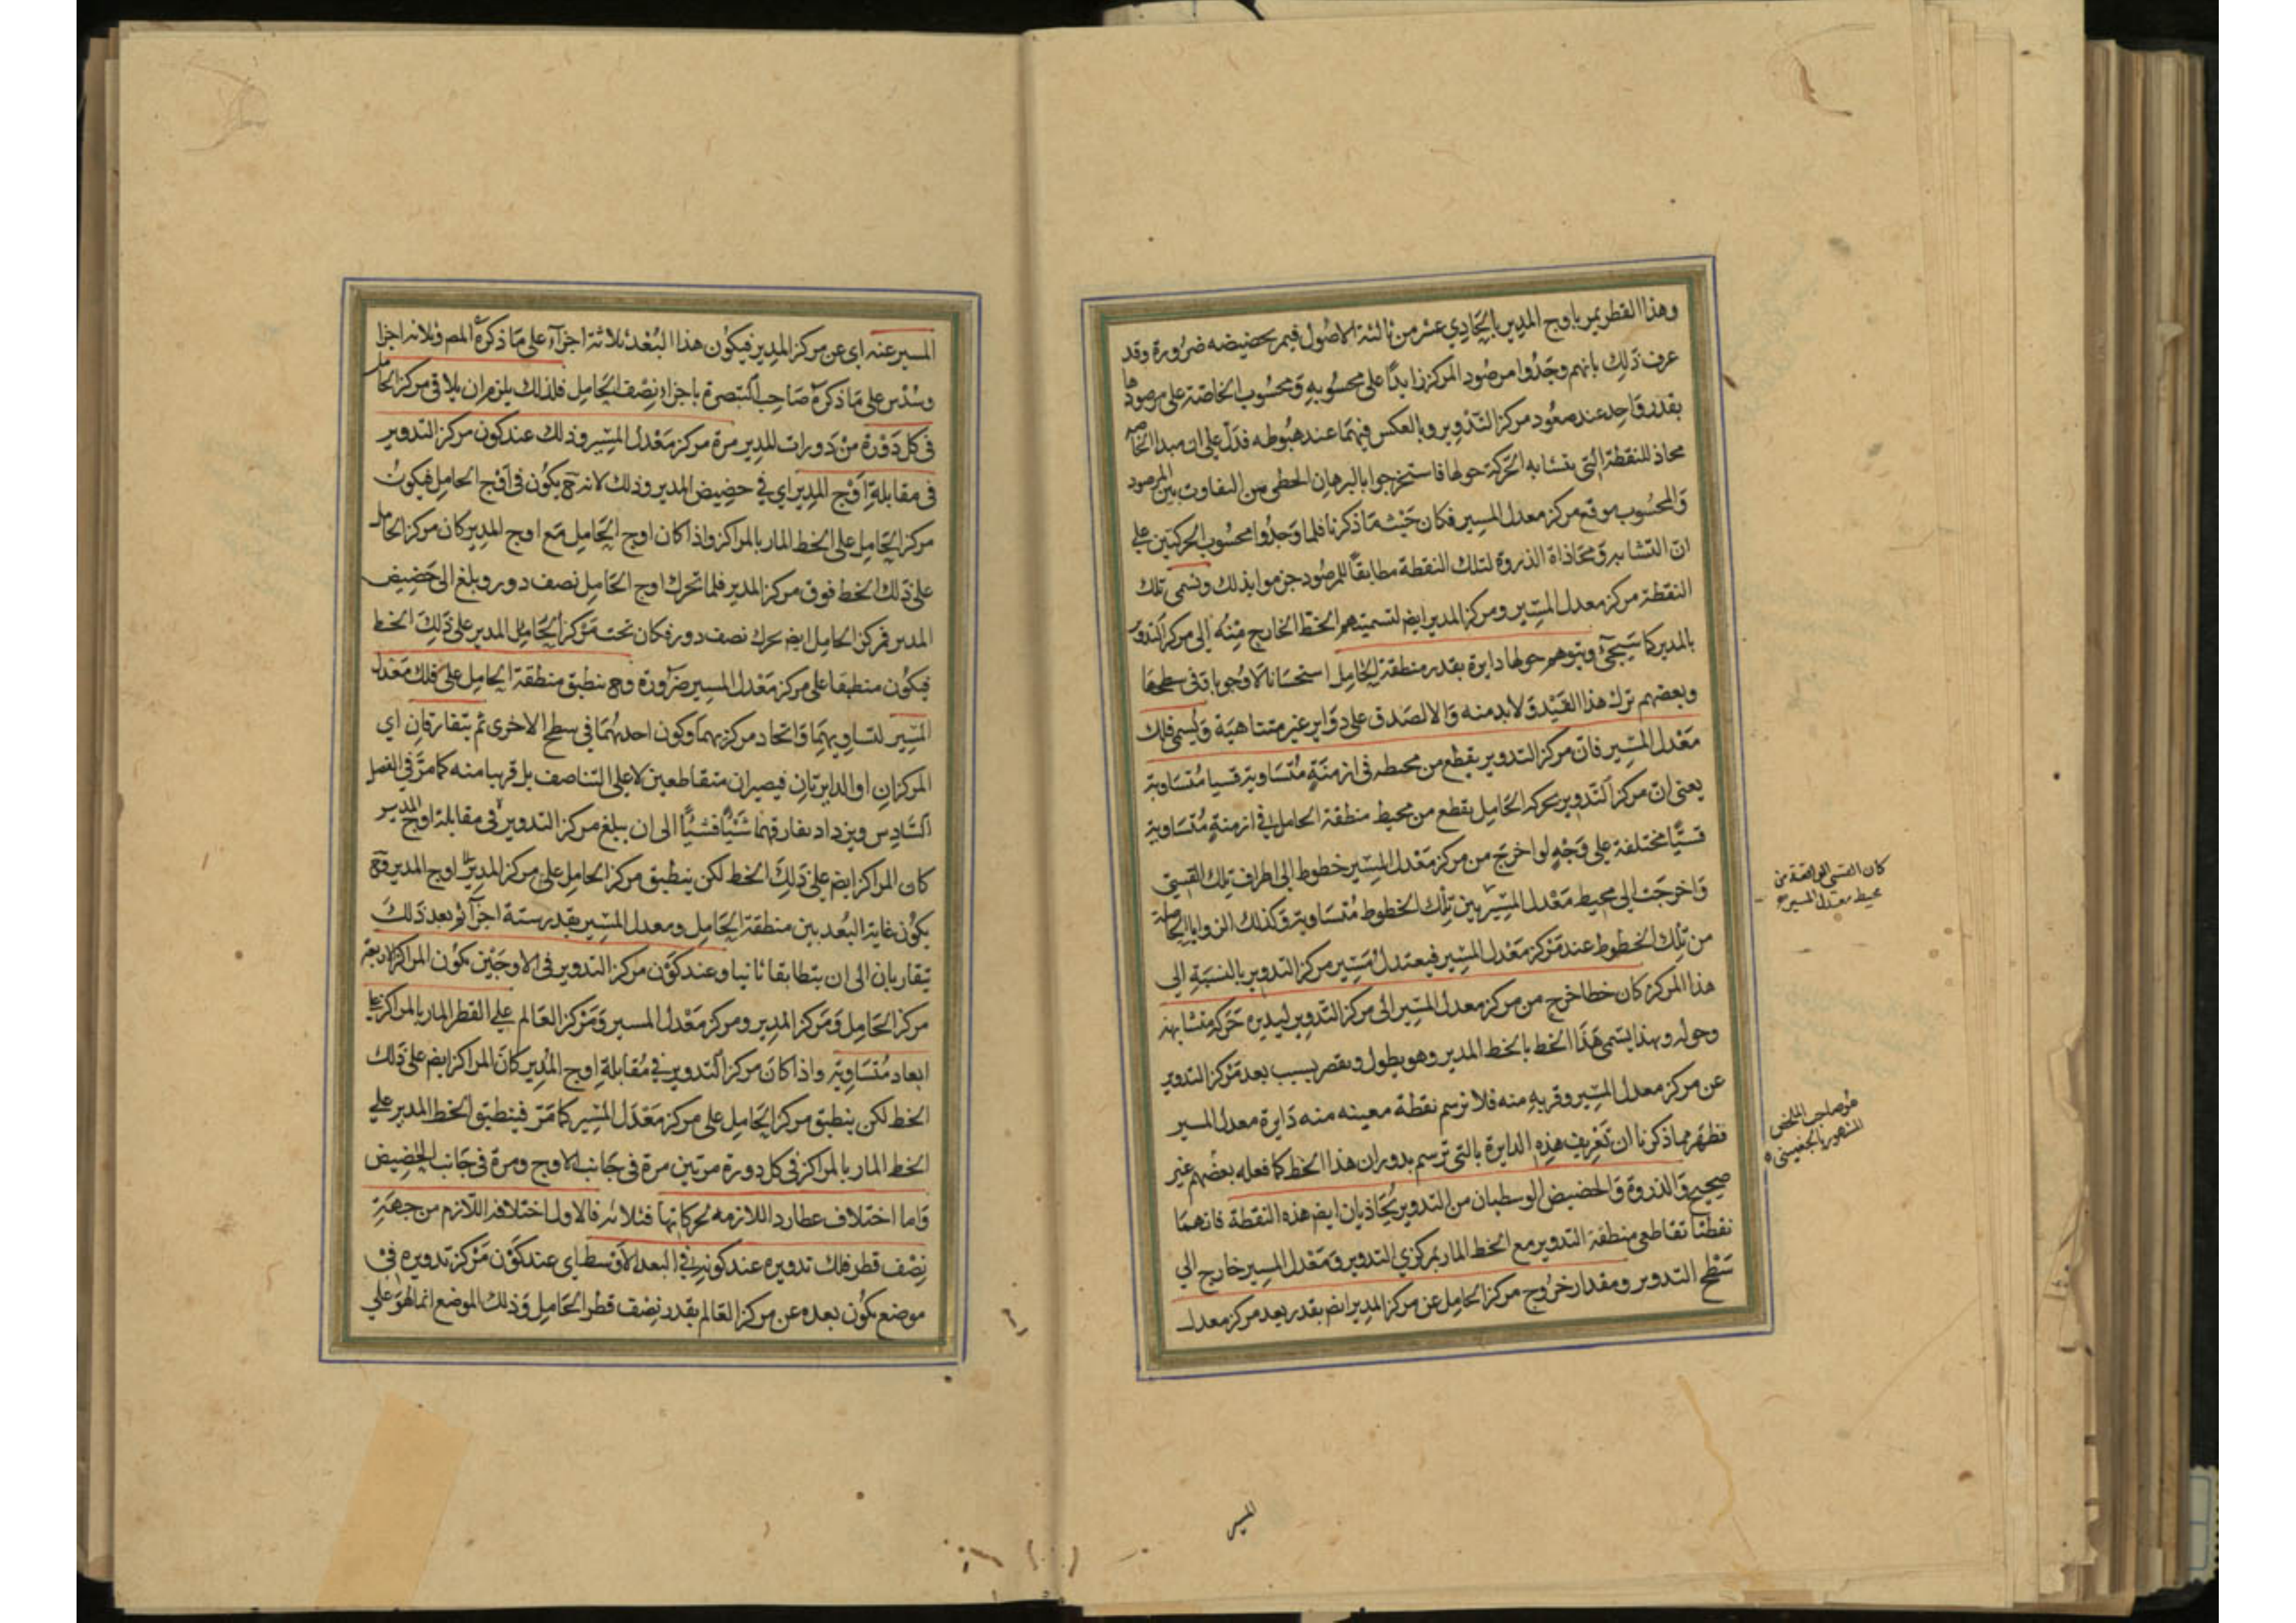 وهذا القطر يمر باوج المدير بالحادي عشر من ثالثة الاصول فيمر بحضيضه ضرورة وقد
عرف ذلك بانهم وجدوا مرصود المركز زايدا على محسوبه ومحسوب الخاصة على مرصودها
بقدر واحد عند صعود مركز التدوير وبالعكس فيهما عند هبوطه فدل على ان مبدا الخاصه
محاذ للنقطة التي يتشابه الحركة حولها فاستخرجوا بالبرهان الخطي من التفاوت بين المرصود
والمحسوب موقع مركز معدل المسير فكان حيث ما ذكرنا فلما وجدوا محسوب الحركتين على
ان التشابه ومحاذاة الذروة لتلك النقطة مطابقا للمرصود جزموا بذلك وتسمى تلك
النقطة مركز معدل المسير ومركز المدير ايض لتسميتهم الخط الخارج منه الى مركز التدوير
بالمدير كما سيجئ ويتوهم حولها دايرة بقدر منطقة الحامل استحسانا لا وجوبا وفي سطحها
وبعضهم ترك هذا القيد ولا بد منه والا لصدق على دواير غير متناهية ويسمى فلك
معدل المسير فان مركز التدوير يقطع من محيطه في ازمنة متساوية قسيا متساوية
يعني ان مركز التدوير بحركه الحامل يقطع من محيط منطقة الحامل في ازمنة متساوية
قسيا مختلفة على وجه لو اخرج من مركز معدل المسير خطوط الى اطراف تلك القسي
واخرجت الى محيط معدل المسير بين تلك الخطوط متساوية وكذلك الزوايا الحاصلة
من تلك الخطوط عند مركز معدل المسير فيعتدل مسير مركز التدوير بالنسبة الى
هذا المركز كان خطا خرج من مركز معدل المسير الى مركز التدوير ليديره حركة متشابهة
وحوله وبهذا يسمى هذا الخط بالخط المدير وهو يطول ويقصر بسبب بعد مركز التدوير
عن مركز معدل المسير وقربه منه فلا ترسم نقطة معينه منه دايرة معدل المسير
فظهر مما ذكرنا ان تعريف هذه الدايرة بالتي ترسم بدوران هذا الخط كما فعله بعضهم غير
صحيح والذروة والحضيض الوسطيان من التدوير يحاذيان ايض هذه النقطة فانهما
نقطتا تقاطعي منطقة التدوير مع الخط المار بمركزي التدوير ومعدل المسير خارج الي
سطح التدوير ومقدار خروج مركز الحامل عن مركز المدير ايض بقدر بعد مركز معدل
كان القسي الواقعة من
محيط معدل المسير
هو صاحب الملخص
المشهور بالجغميني
المسير
المسير عنه اي عن مركز المدير فيكون هذا البعد ثلاثة اجزآء على ما ذكره المص وثلاثه اجزا
وسدس على ما ذكره صاحب التبصرة باجزاء نصف الحامل فلذلك يلزم ان يلاقي مركز الحامل
في كل دورة من دورات المدير مرة مركز معدل المسير وذلك عند كون مركز التدوير
في مقابلة اوج المدير اي في حضيض المدير وذلك لانه ح يكون في اوج الحامل فيكون
مركز الحامل على الخط المار بالمراكز واذا كان اوج الحامل مع اوج المدير كان مركز الحامل
على ذلك الخط فوق مركز المدير فلما تحرك اوج الحامل نصف دور وبلغ الى حضيض
المدير فمركز الحامل ايض تحرك نصف دور فكان تحت مركز الحامل المدير على ذلك الخط
فيكون منطبقا على مركز معدل المسير ضرورة وح ينطبق منطقة الحامل على فلك معدل
المسير لتساويهما واتحاد مركزيهما وكون احديهما في سطح الاخرى ثم يتفارقان اي
المركزان او الدايرتان فيصيران متقاطعين لا على التناصف بل قريبا منه كما مر في الفصل
السادس ويزداد تفارقهما شيئا فشيئا الى ان يبلغ مركز التدوير في مقابلة اوج المدير
كان المراكز ايض على ذلك الخط لكن ينطبق مركز الحامل على مركز المدير اوج المدير وح
يكون غاية البعد بين منطقة الحامل ومعدل المسير بقدر ستة اجزآء ثم بعد ذلك
يتقاربان الى ان يتطابقا ثانيا وعند كون مركز التدوير في الاوجين يكون المراكز الاربعة
مركز الحامل ومركز المدير ومركز معدل المسير ومركز العالم على القطر المار بالمراكز على
ابعاد متساوية واذا كان مركز التدوير في مقابلة اوج المدير كان المراكز ايض على ذلك
الخط لكن ينطبق مركز الحامل على مركز معدل المسير كما مر فينطبق الخط المدير على
الخط المار بالمراكز في كل دورة مرتين مرة في جانب الاوج ومرة في جانب الحضيض
واما اختلاف عطارد اللازمه لحركاتها فثلاثه فالاول اختلافه اللازم من جهة
نصف قطر فلك تدويره عند كونه في البعد الاوسط اي عند كون مركز تدويره في
موضع يكون بعده عن مركز العالم بقدر نصف قطر الحامل وذلك الموضع انما هو على